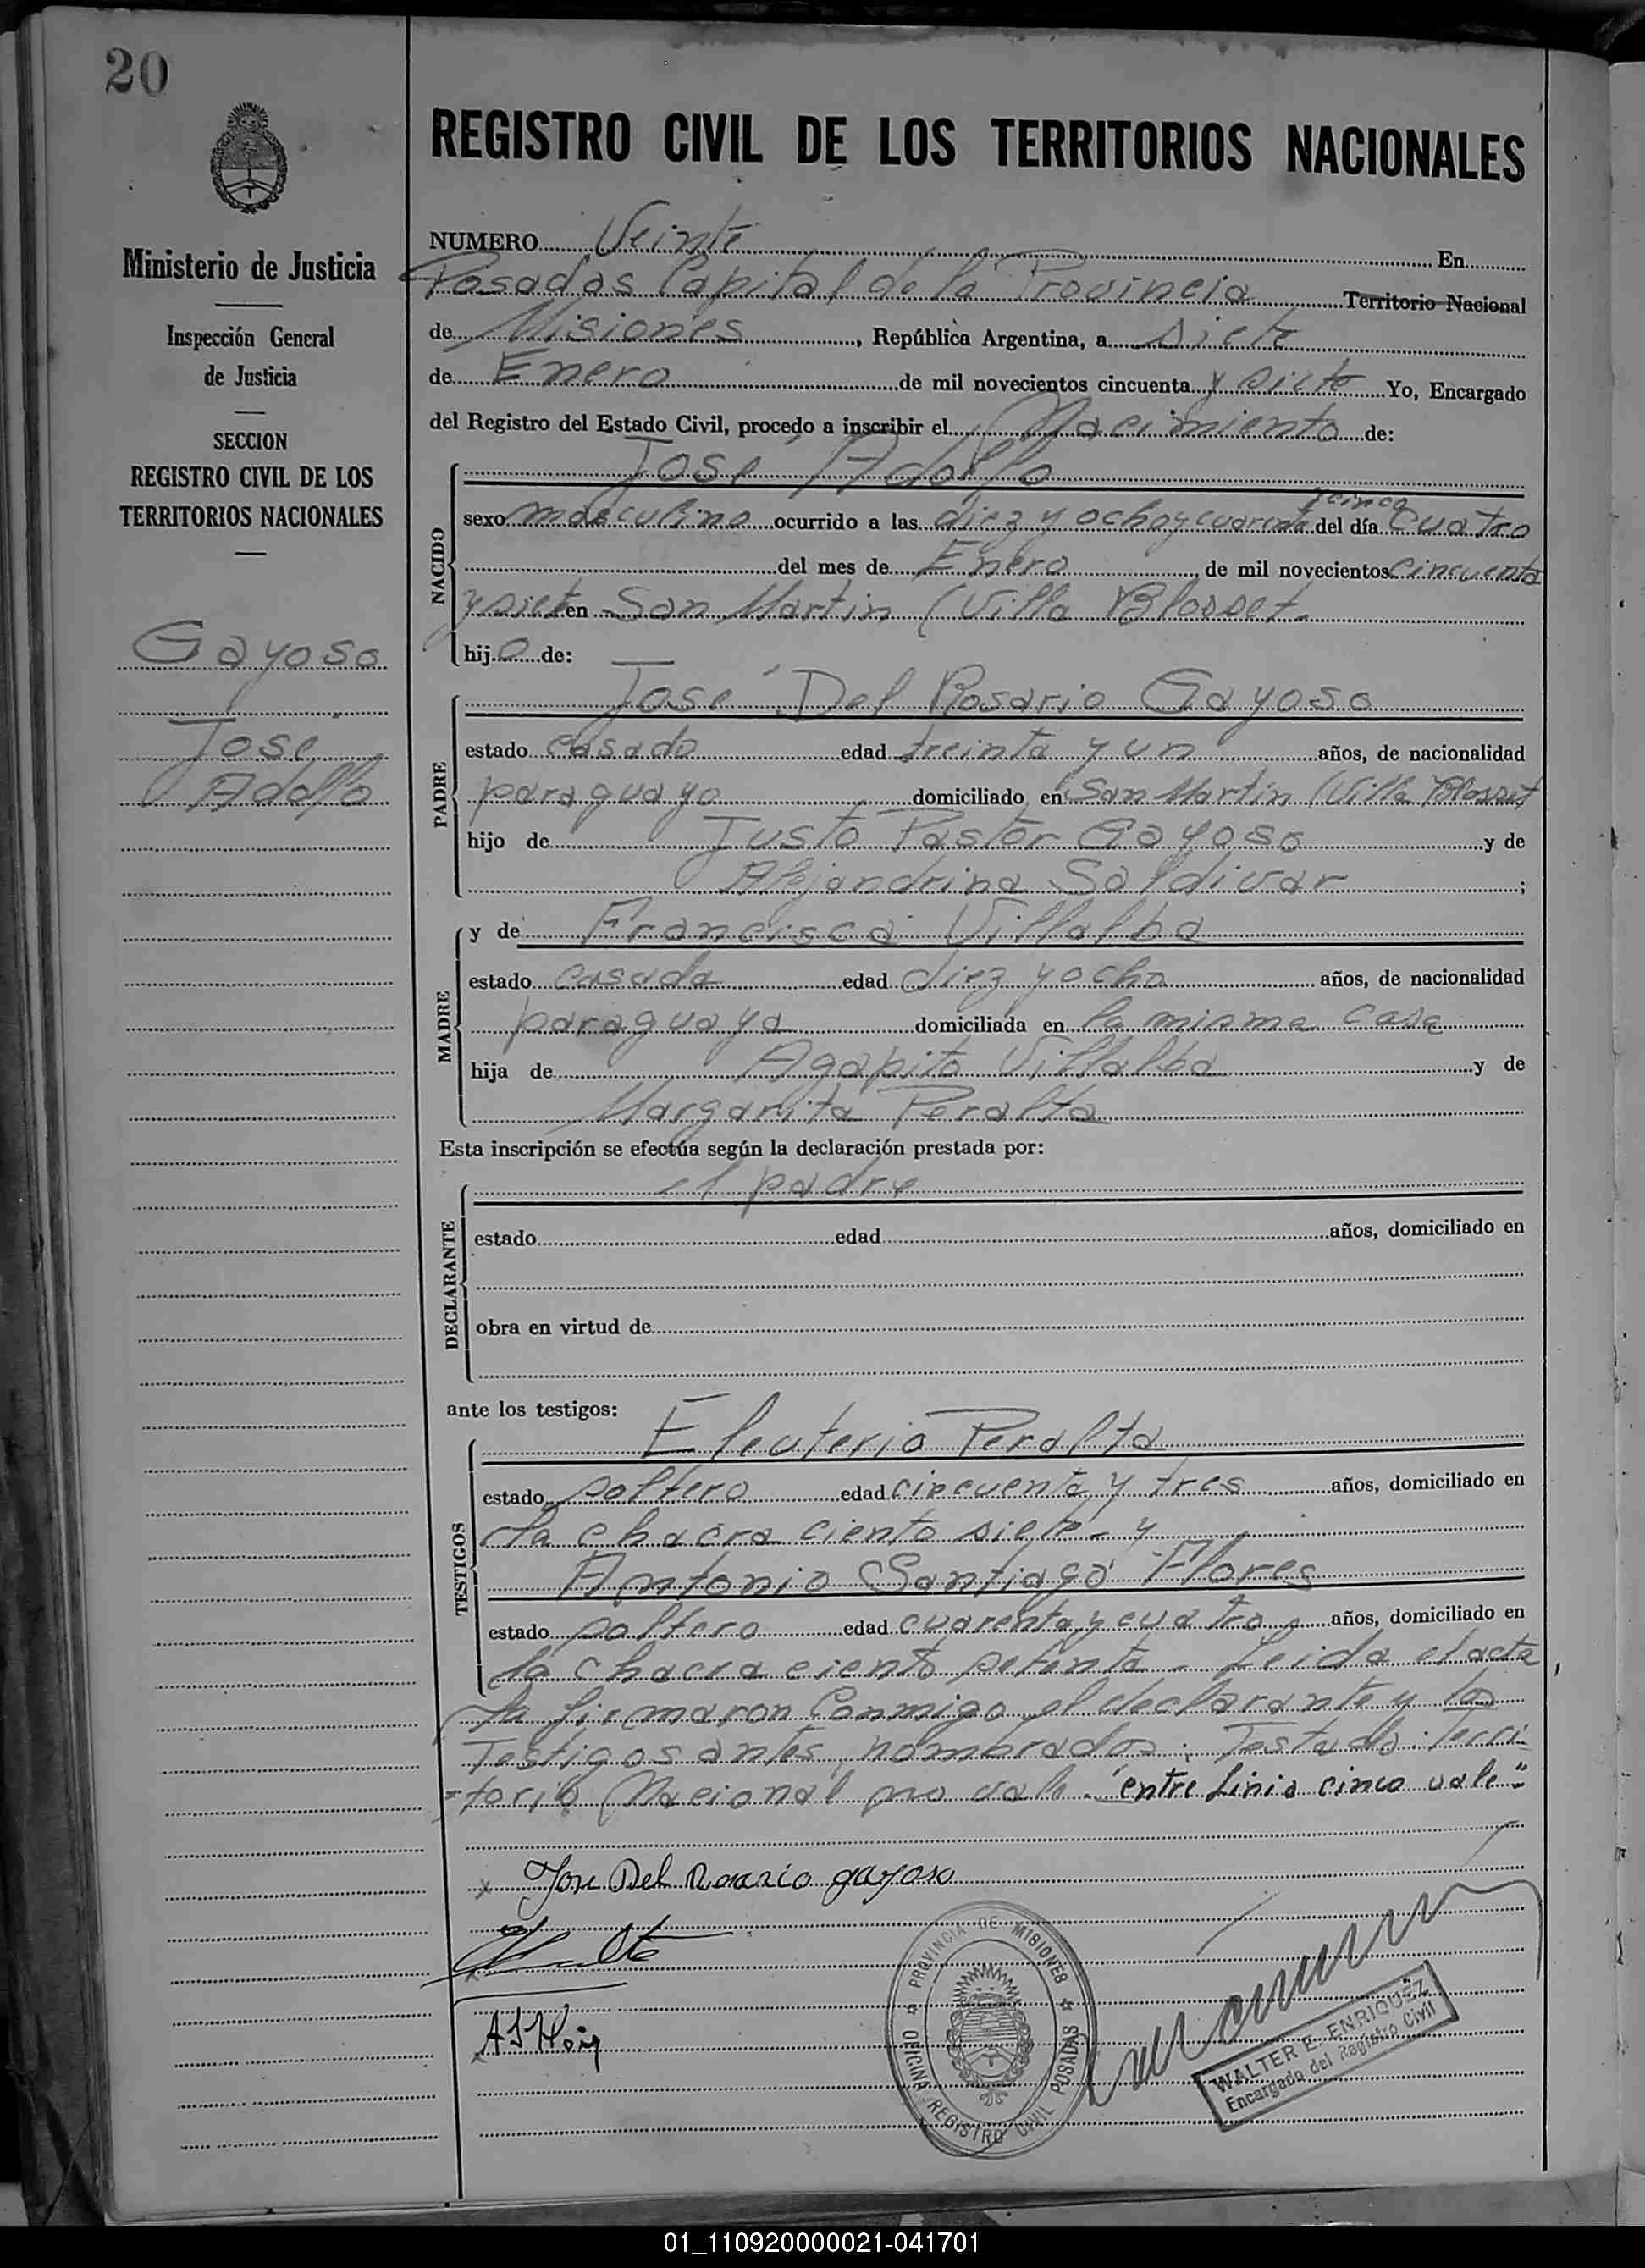 20
REGISTRO CIVIL DE LOS TERRITORIOS NACIONALES
Ministerio de Justicia
Inspección General
de Justicia
SECCION
REGISTRO CIVIL DE LOS
TERRITORIOS NACIONALES
Gayoso
Jose
Adolfo
NUMERO Veinte En
Posadas Capital de la Provincia Territorio Nacional
de Misiones, República Argentina, a siete
de Enero de mil novecientos cincuenta y siete Yo, Encargado
del Registro del Estado Civil, procedo a inscribir el Nacimiento de:
NACIDO
José Adolfo
y cinco
sexo masculino ocurrido a las diez y ocho y cuarenta del día cuatro
del mes de Enero de mil novecientos cincuenta
y siete en San Martin (Villa Blosset
hijo de:
PADRE
José Del Rosario Gayoso
estado casado edad treinta y un años, de nacionalidad
paraguayo domiciliado en San Martin (Villa Blosset
hijo de Justo Pastor Gayoso y de
Alejandrina Saldivar;
MADRE
y de Francisca Villalba
estado casada edad diez y ocho años, de nacionalidad
paraguaya domiciliada en la misma casa
hija de Agapito Villalba y de
Margarita Peralta
Esta inscripción se efectúa según la declaración prestada por:
DECLARANTE
el padre
estado edad años, domiciliado en
obra en virtud de
ante los testigos:
TESTIGOS
Eleuterio Peralta
estado soltero edad cincuenta y tres años, domiciliado en
la chacra ciento siete - y
Antonio Santiago Flores
estado soltero edad cuarenta y cuatro años, domiciliado en
la chacra ciento setenta - Leida el acta,
la firmaron conmigo el declarante y los
Testigos antes nombrados: Testado: Terri-
-torio Nacional no vale. "entre Linia cinco vale"
x Jose Del Rosario gayoso
PROVINCIA DE MISIONES
OFICINA REGISTRO CIVIL POSADAS
WALTER E. ENRIQUEZ
Encargado del Registro Civil
01_110920000021-041701